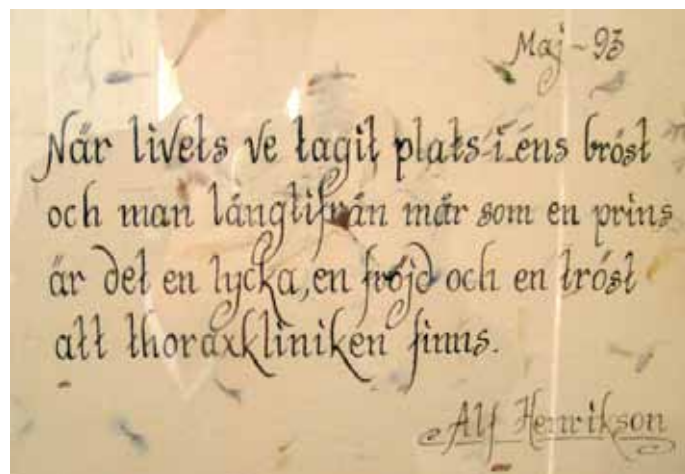 Maj - 93
När livets ve tagit plats i ens bröst
och man långtifrån mår som en prins
är det en lycka, en fröjd och en tröst
att thoraxkliniken finns.
Alf Henrikson